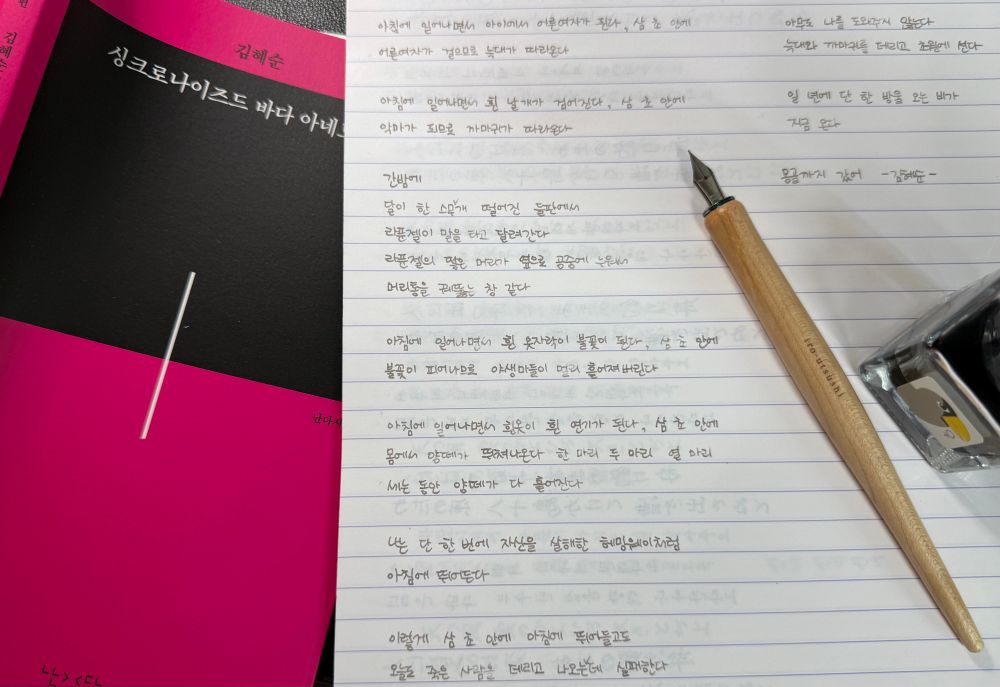 김혜순
김혜순
싱크로나이즈드 바다 아네
난다시
아침에 일어나면서 아이에서 어른여자가 된다, 삼 초 안에
어른여자가 걸으므로 늑대가 따라온다
아침에 일어나면서 흰 날개가 검어진다, 삼 초 안에
악마가 되므로 까마귀가 따라온다
간밤에
달이 한 스무개 떨어진 들판에서
라푼젤이 말을 타고 달려간다
라푼젤의 땋은 머리가 옆으로 공중에 누워서
머리통을 꿰뚫는 창 같다
아침에 일어나면서 흰 옷자락이 불꽃이 된다, 삼 초 안에
불꽃이 피어나므로 야생마들이 멀리 흩어져버린다
아침에 일어나면서 흰옷이 흰 연기가 된다, 삼 초 안에
몸에서 양떼가 뛰쳐나온다 한 마리 두 마리 열 마리
세는 동안 양떼가 다 흩어진다
나는 단 한 번에 자신을 살해한 헤밍웨이처럼
아침에 뛰어든다
이렇게 삼 초 안에 아침에 뛰어들고도
오늘도 죽은 사람을 데리고 나오는데 실패한다
아무도 나를 도와주지 않는다
늑대와 까마귀를 데리고 초원에 선다
일 년에 단 한 방울 오는 비가
지금 온다
몽골까지 갔어 -김혜순-
iro-utsushi